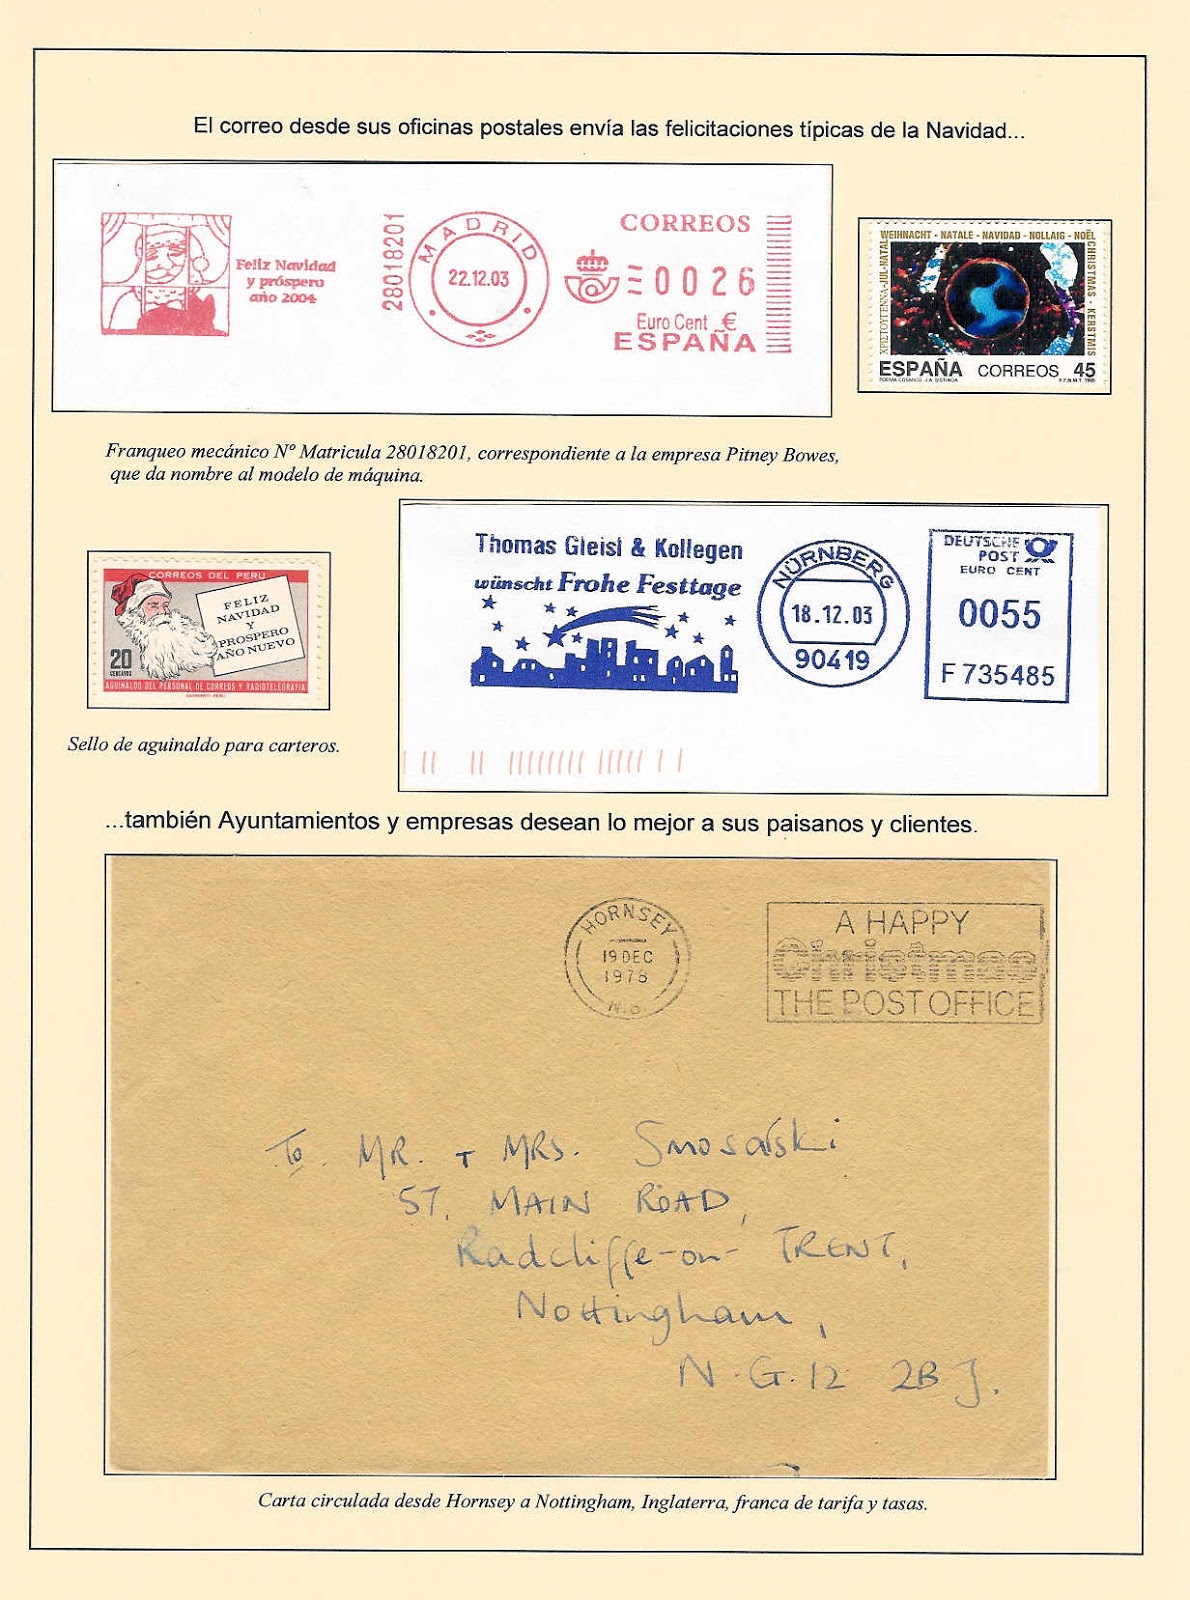 El correo desde sus oficinas postales envía las felicitaciones típicas de la Navidad...
Feliz Navidad
y próspero
año 2004
28018201
MADRID
22.12.03
CORREOS
0026
Euro Cent €
ESPAÑA
WEIHNACHT - NATALE - NAVIDAD - NOLLAIG - NOËL
ΧΡΙΣΤΟΥΓΕΝΝΑ-JUL-NATAL
CHRISTMAS - KERSTMIS
ESPAÑA CORREOS 45
POEMA COSMICO J.A. SISTIAGA F.N.M.T. 1990
Franqueo mecánico Nº Matricula 28018201, correspondiente a la empresa Pitney Bowes,
que da nombre al modelo de máquina.
CORREOS DEL PERU
FELIZ
NAVIDAD
Y
PROSPERO
AÑO NUEVO
20
CENTAVOS
AGUINALDO DEL PERSONAL DE CORREOS Y RADIOTELEGRAFIA
Sello de aguinaldo para carteros.
Thomas Gleisl & Kollegen
wünscht Frohe Festtage
NÜRNBERG
18.12.03
90419
DEUTSCHE
POST
EURO CENT
0055
F 735485
...también Ayuntamientos y empresas desean lo mejor a sus paisanos y clientes.
HORNSEY
19 DEC
1978
N.8
A HAPPY
Christmas
THE POST OFFICE
To. MR. + MRS. Smosarski
57, MAIN ROAD,
Radcliffe-on-TRENT,
Nottingham,
N.G.12 2BJ.
Carta circulada desde Hornsey a Nottingham, Inglaterra, franca de tarifa y tasas.